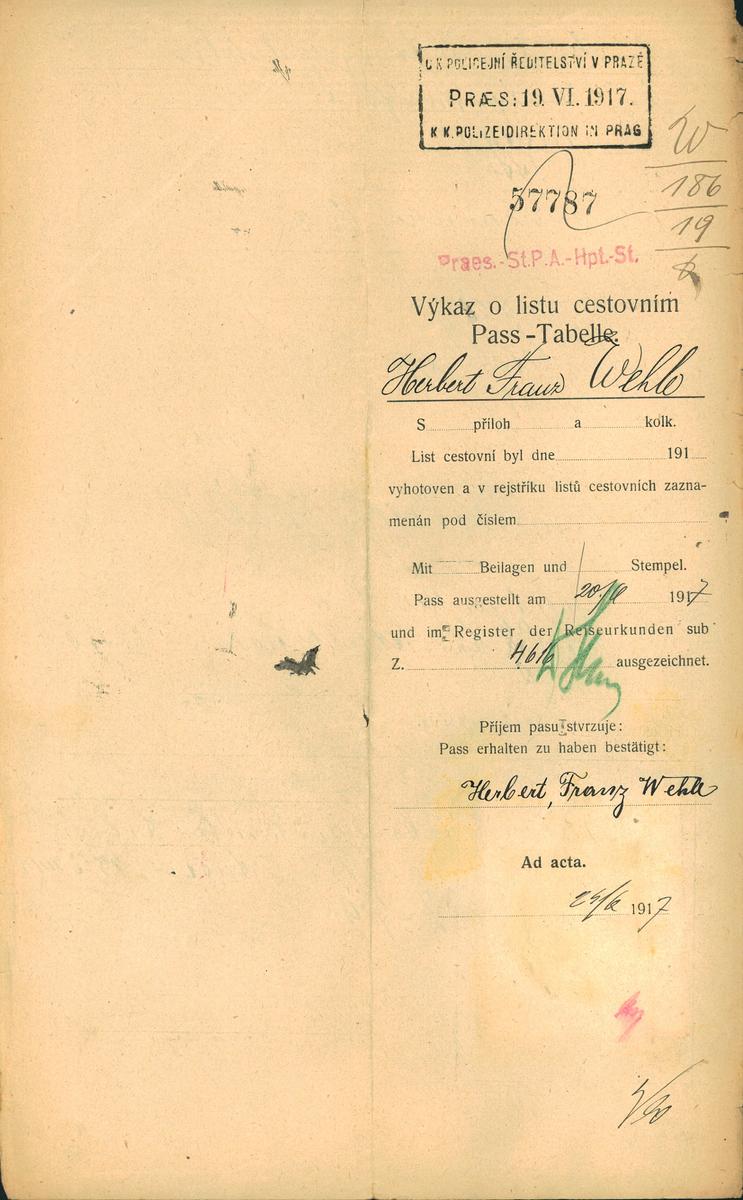 C.K. POLICEJNÍ ŘEDITELSTVÍ V PRAZE
PRÆS: 19. VI. 1917.
K. K. POLIZEIDIREKTION IN PRAG
W
186
19
57787
Praes.-St.P.A.-Hpt.-St.
Výkaz o listu cestovním
Pass-Tabelle.
Herbert Franz Wehle
S příloh a kolk.
List cestovní byl dne 191
vyhotoven a v rejstříku listů cestovních zazna-
menán pod číslem
Mit Beilagen und Stempel.
Pass ausgestellt am 20/6 1917
und im Register der Reiseurkunden sub
Z. 4616 ausgezeichnet.
Příjem pasu stvrzuje:
Pass erhalten zu haben bestätigt:
Herbert, Franz Wehle
Ad acta.
25/6 1917